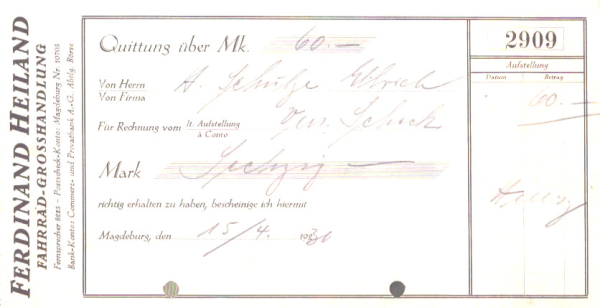 FERDINAND HEILAND
FAHRRAD-GROSSHANDLUNG
Fernsprecher 8225 – Postscheck-Konto: Magdeburg Nr. 10708
Bank-Konto: Commerz- und Privatbank A.-G. Abtlg. Börse
Quittung über Mk. 60.—
Von Herrn
Von Firma
A. Schulze
Für Rechnung vom lt. Aufstellung
à Conto
Mark Sechzig —
richtig erhalten zu haben, bescheinige ich hiermit
Magdeburg, den 15/4. 193
2909
Aufstellung
Datum Betrag
60.—